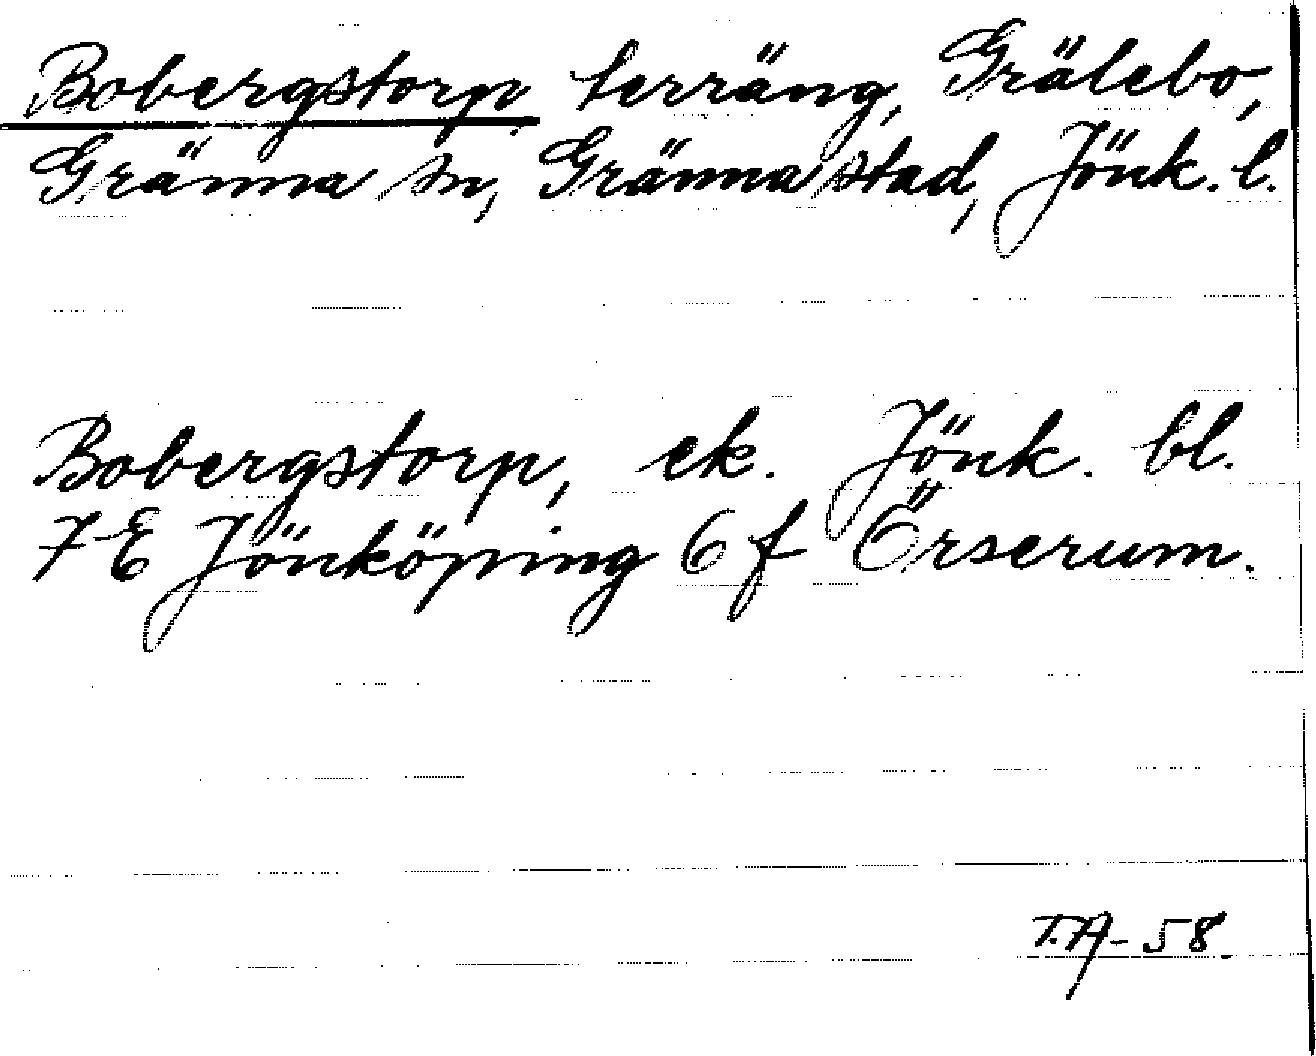 Bobergstorp, terräng, Grälebo,
Gränna sn, Gränna stad, Jönk. l.
Bobergstorp, ek. Jönk. bl.
7 E Jönköping 6 f Örserum.
T.A-58.